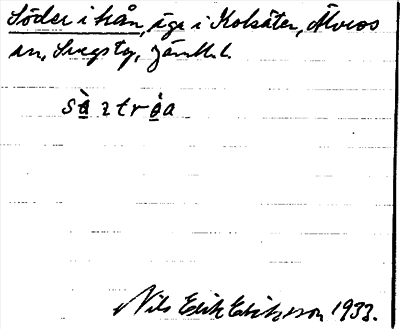 Söder i krån, äga i Kolsäter, Älvros
sn, Svegs tg, Jämtl. l.
sà̱ ɿtrå̱a
Nils Erik Eriksson 1933.